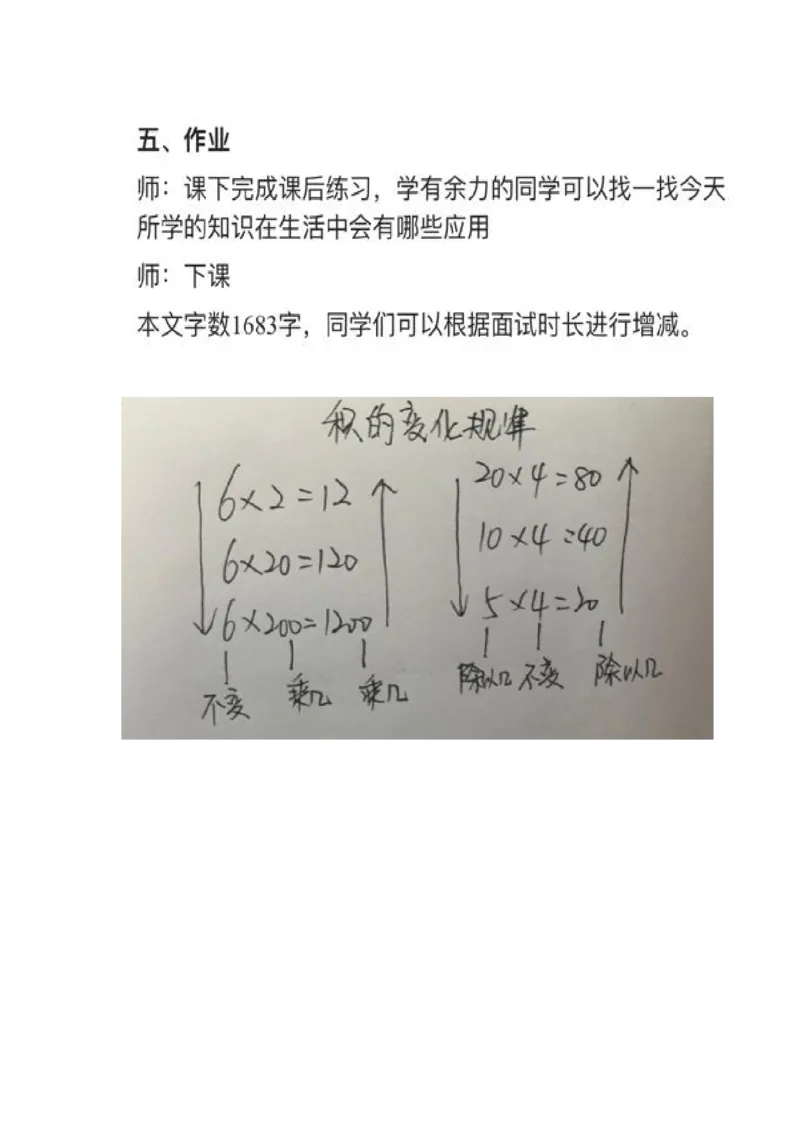 五、作业
师：课下完成课后练习，学有余力的同学可以找一找今天
所学的知识在生活中会有哪些应用
师：下课
本文字数1683字，同学们可以根据面试时长进行增减。
积的变化规律
6×2=12
6×20=120
6×200=1200
不变 乘几 乘几
20×4=80
10×4=40
5×4=20
除以几 不变 除以几